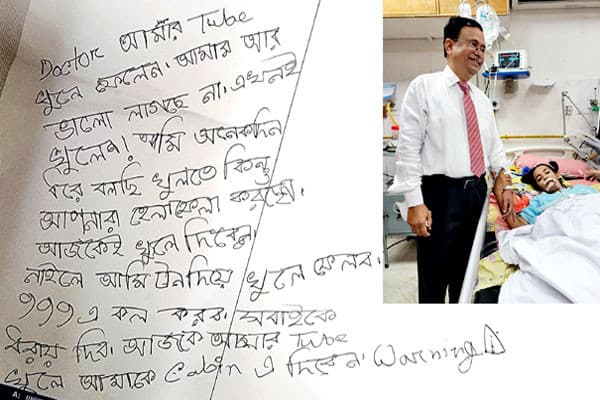 Doctor আমার Tube
খুলে ফেলেন. আমার আর
ভালো লাগছে না. এখনই
খুলেন! আমি অনেকদিন
ধরে বলছি খুলতে কিন্তু
আপনারা হেলাফেলা করছেন.
আজকেই খুলে দিবেন.
নাইলে আমি টান দিয়ে খুলে ফেলব.
999 এ কল করব. সবাইকে
ধরায় দিব. আজকে আমার Tube
খুলে আমাকে Cabin এ দিবেন. Warning